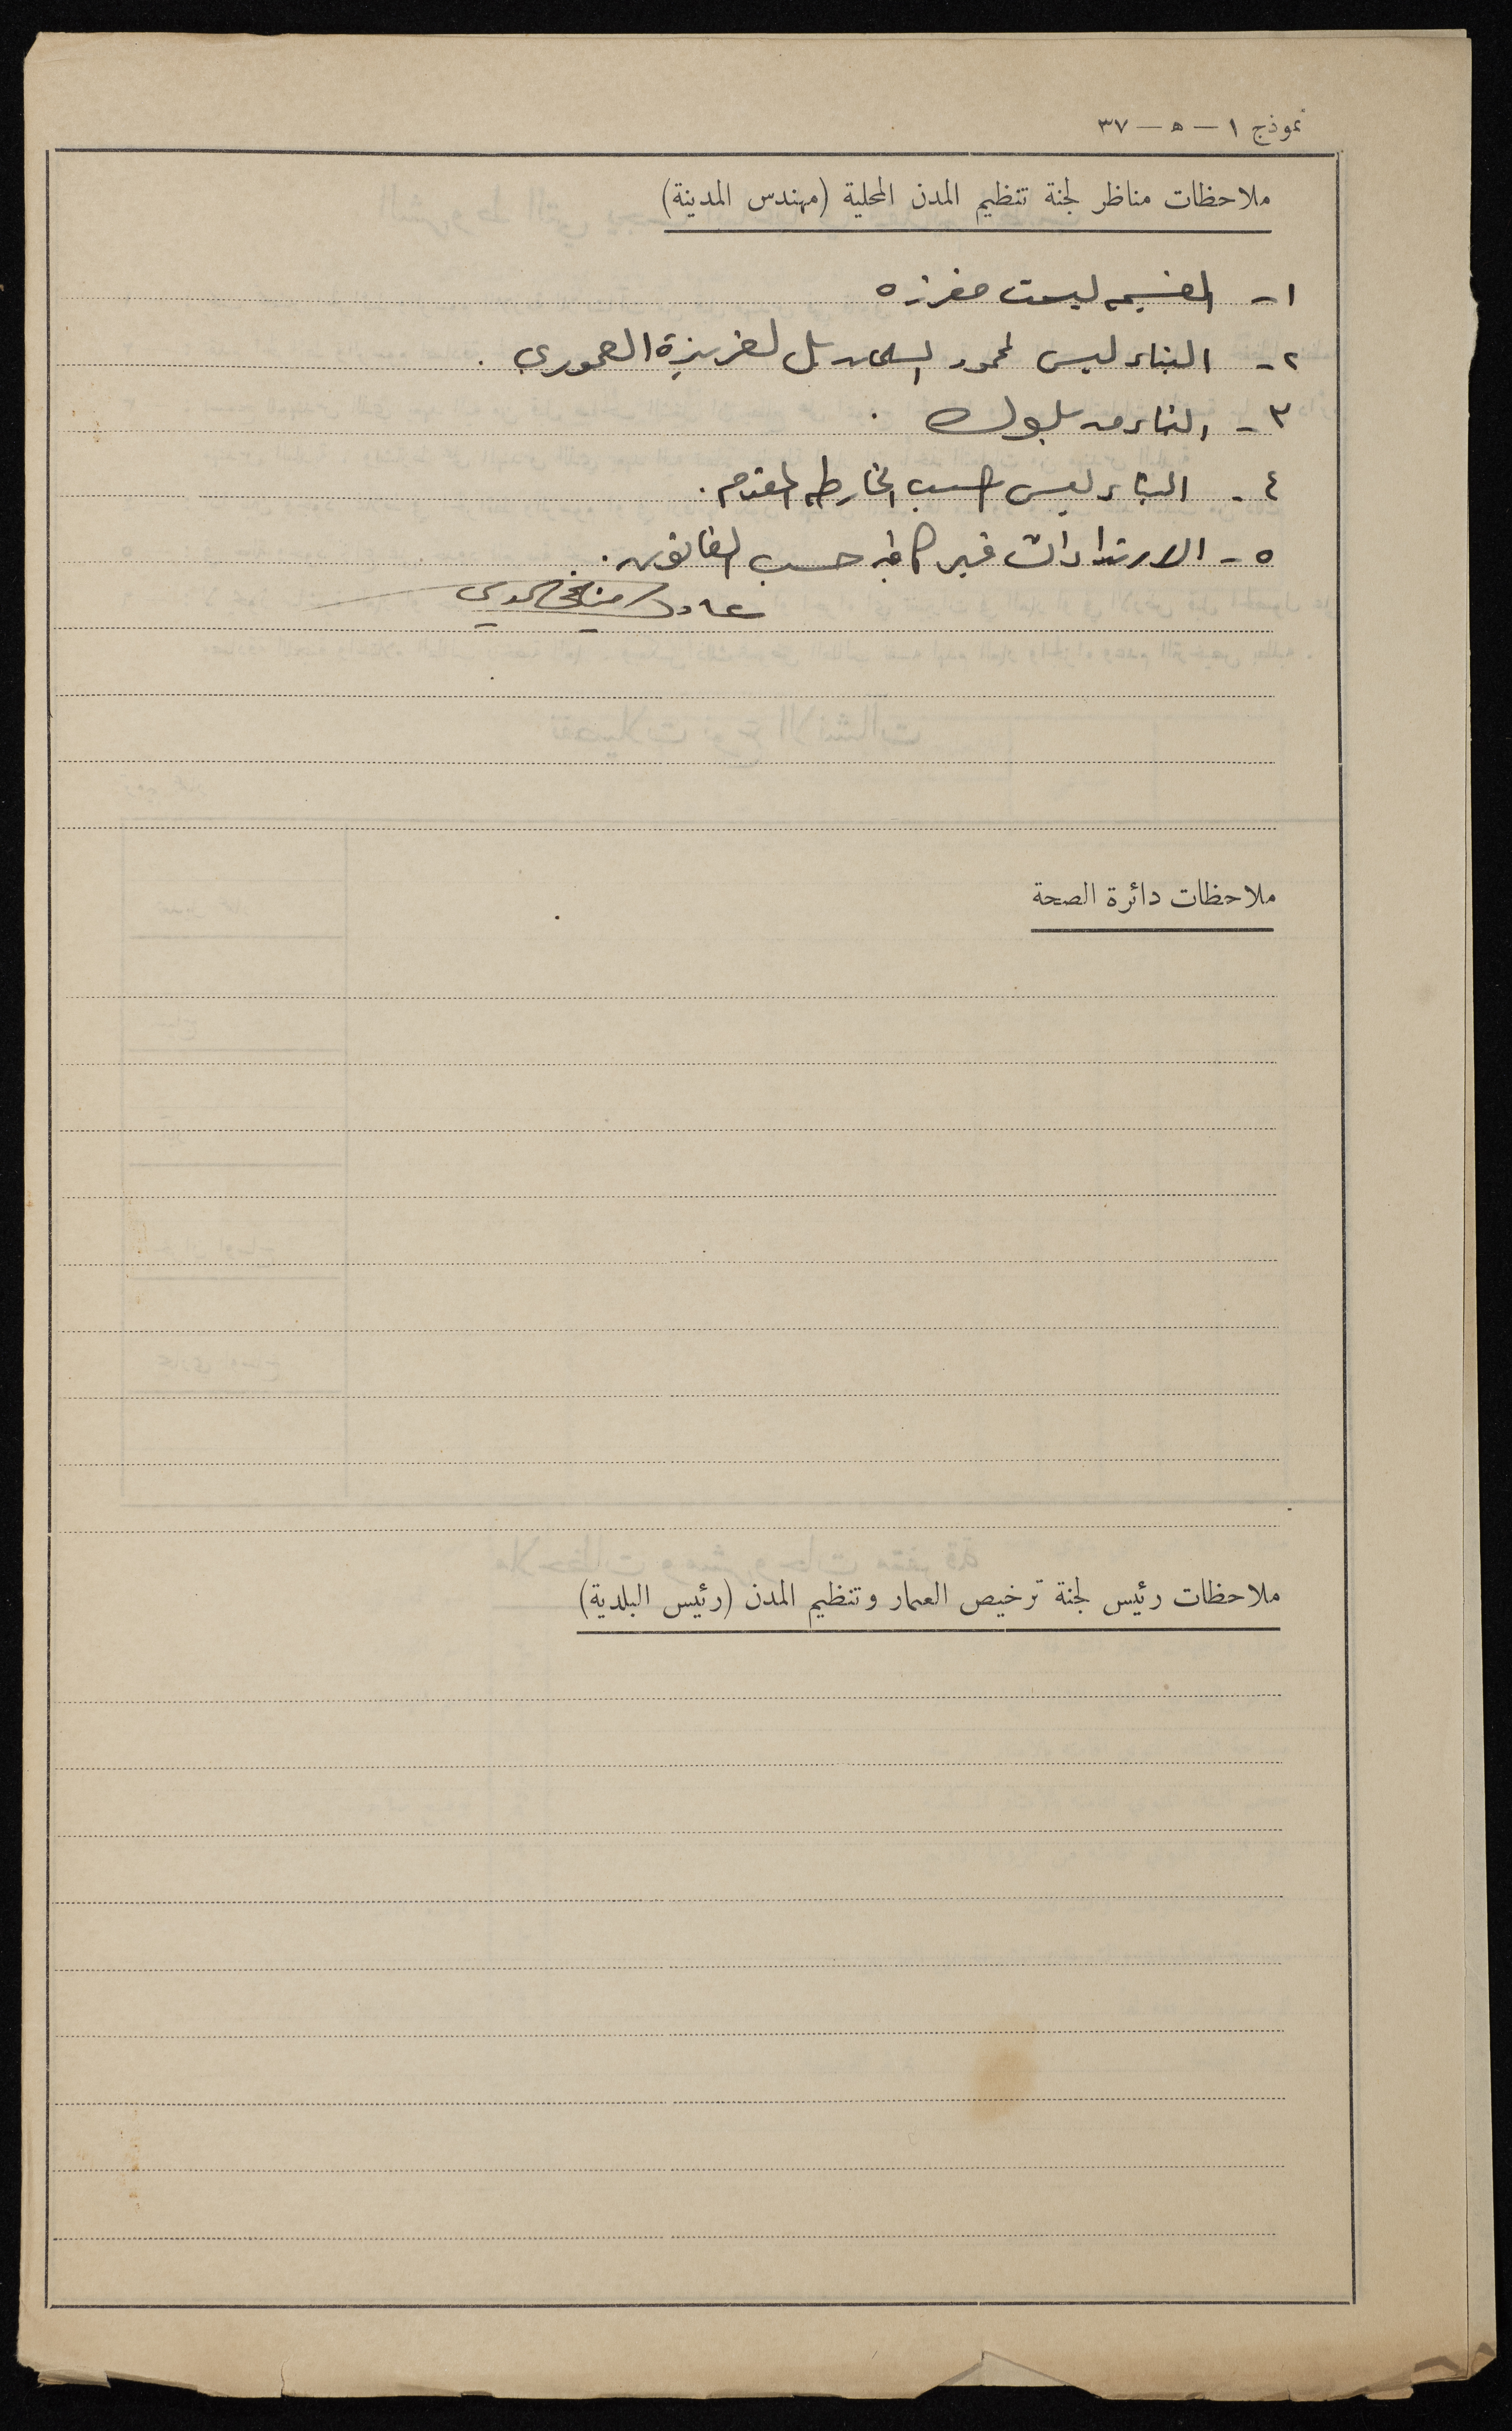 نموذج ١ — ٥ — ٣٧
ملاحظات مناظر لجنة تنظيم المدن المحلية (مهندس المدينة)
١- القسيمه ليست مفرزه
٢- البناء ليس لمحمود السلمان بل لعزيزة العموري .
٣- البناء من بلوك .
٤- البناء ليس حسب الخارطه المقدمه .
٥- الارتدادات غير كافيه حسب القانون .
ملاحظات دائرة الصحة
ملاحظات رئيس لجنة ترخيص العمار وتنظيم المدن (رئيس البلدية)